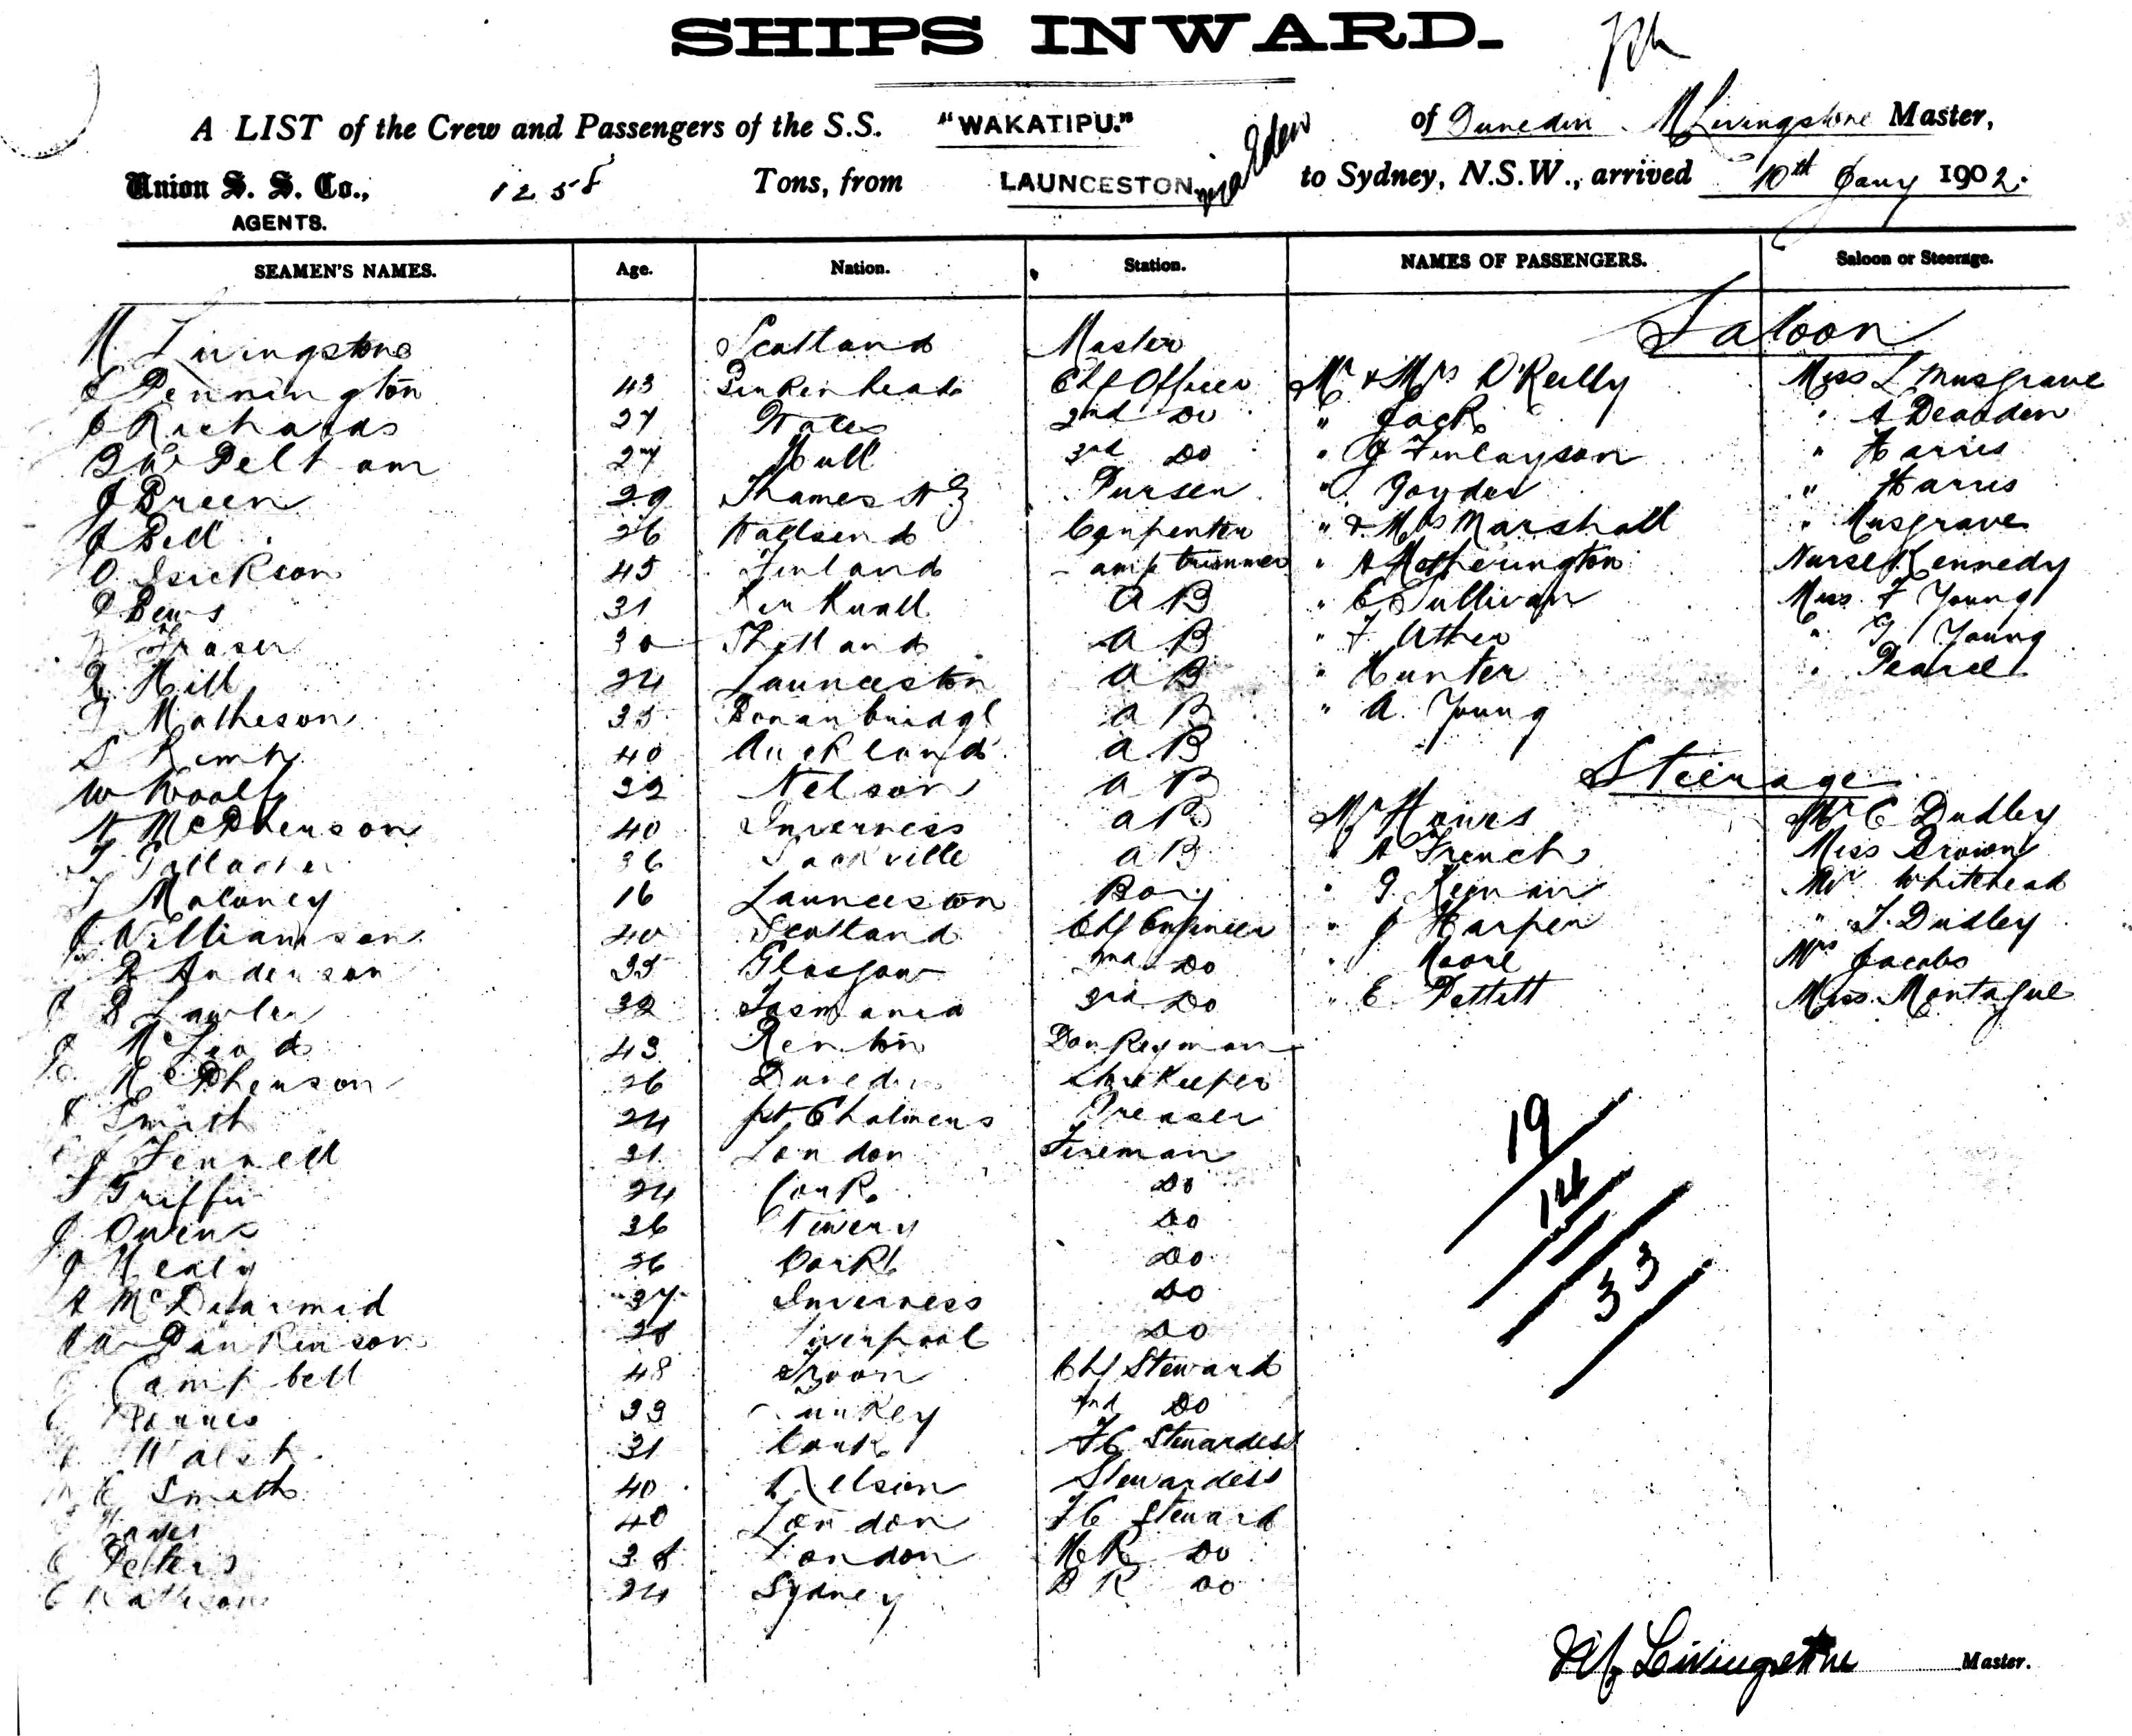 SHIPS INWARD.
A LIST of the Crew and Passengers of the S.S. "WAKATIPU." of Dunedin M Livingstone Master,
Union S. S. Co., 1258 Tons, from LAUNCESTON via Eden to Sydney, N.S.W., arrived 10th Jany 1902.
AGENTS.
SEAMEN'S NAMES. Age. Nation. Station. NAMES OF PASSENGERS. Saloon or Steerage.
Saloon
M Livingstone Scotland Master
Pennington 43 Birkenhead Chf Officer Mr & Mrs O'Reilly Miss L Musgrave
Richards 27 Wales 2nd Do " Jack " A Dearden
Pelham 27 Hull 3rd Do " J Finlayson " Harris
J Breen 29 Thames N Z Purser " Goyder " Harris
J Bell 26 Wallsend Carpenter " & Mrs Marshall " Musgrave
O. Isickson 45 Finland amp trimmer " A Hetherington Nurse Kennedy
Bews 31 Kirkwall A B " E Sullivan Miss F Young
Fraser 30 Shetland A B " F Ather " G Young
Hill 24 Launceston A B " Hunter " Pearce
Matheson 35 Bonar bridge A B " A. Young
S Kemp 40 Auckland A B
Steerage
W Woolf 32 Nelson A B
McPherson 40 Inverness A B Mr Hawes Mr C Dudley
Gallacher 36 Sackville A B " A French Miss Brown
Maloney 16 Launceston Boy " Keenan Mr Whitehead
J Williamson 40 Scotland Chf Engineer " J Harper " T. Dudley
R Anderson 35 Glasgow 2nd Do " Moore Mrs Jacobs
Lawler 32 Tasmania 3rd Do " E. Pettitt Miss Montague
McLeod 43 Renton Donkeyman
McPherson 26 Dunedin Storekeeper
Smith 24 Pt Chalmers Greaser
J Fennell 31 London Fireman
Griffin 24 Cork Do
J Owens 36 Do
J Healy 36 Cork Do
A McDiarmid 37 Inverness Do
Dankinson 28 Liverpool Do
Campbell 48 Troon Chf Steward
33 2nd Do
Walsh 31 Cork F C Stewardess
Smith 40 Nelson Stewardess
40 London F C Steward
Peters 38 London M R Do
24 Sydney B R Do
19
14
33
M Livingstone Master.